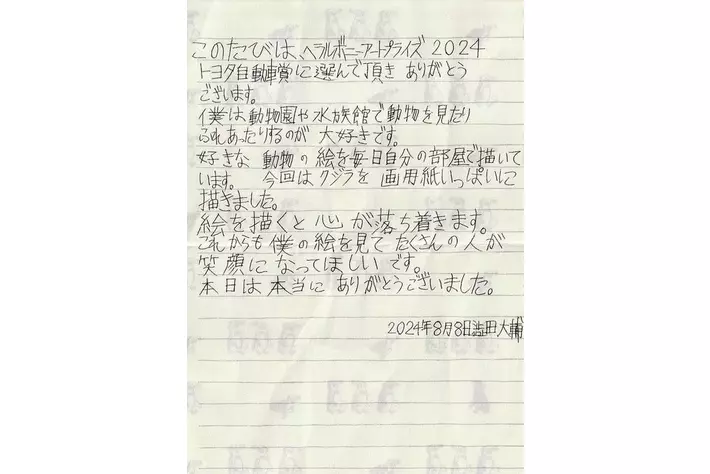 このたびは、ヘラルボニーアートプライズ 2024
トヨタ自動車賞に選んで頂き ありがとう
ございます。
僕は動物園や水族館で動物を見たり
ふれあったりするのが 大好きです。
好きな 動物の 絵を毎日自分の部屋で描いて
います。 今回は クジラを 画用紙いっぱいに
描きました。
絵を描くと 心が落ち着きます。
これからも 僕の絵を見て たくさんの人が
笑顔に なってほしい です。
本日は 本当に ありがとうございました。
2024年8月8日澁田大輔